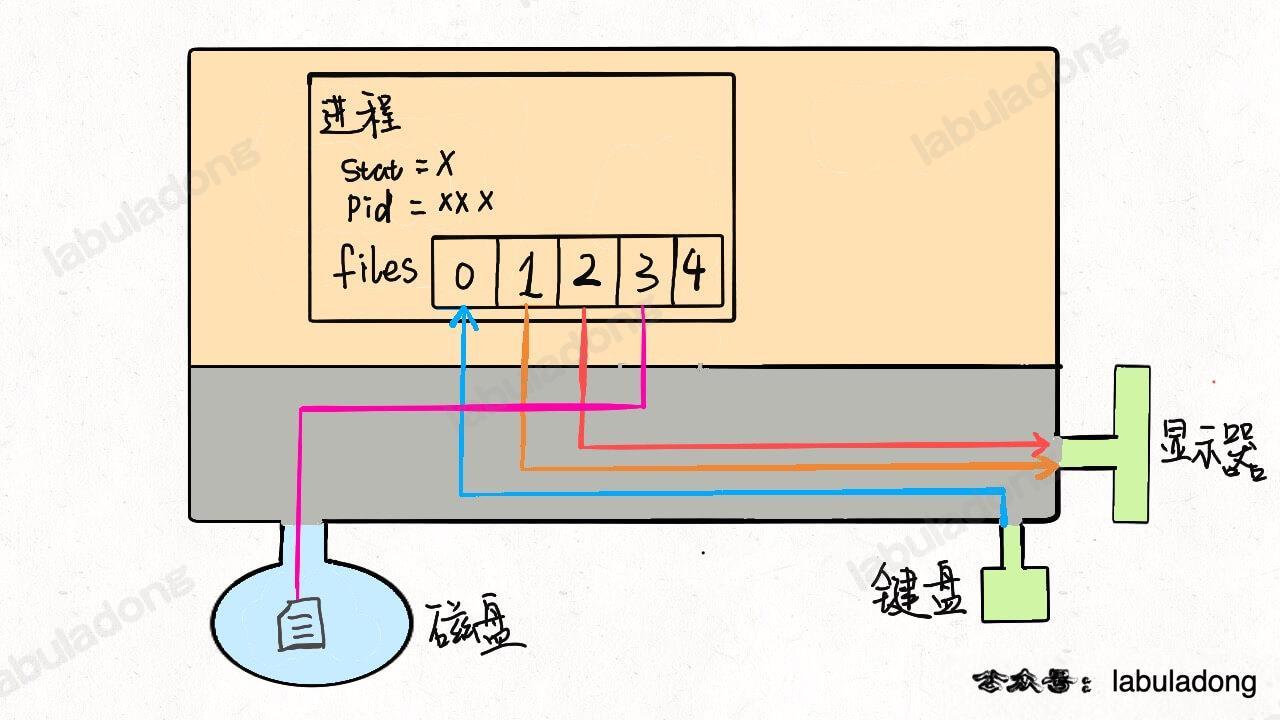 进程
stat = X
Pid = XXX
files 0 1 2 3 4
显示器
键盘
磁盘
公众号：labuladong
labuladong
labuladong
labuladong
labuladong
labuladong